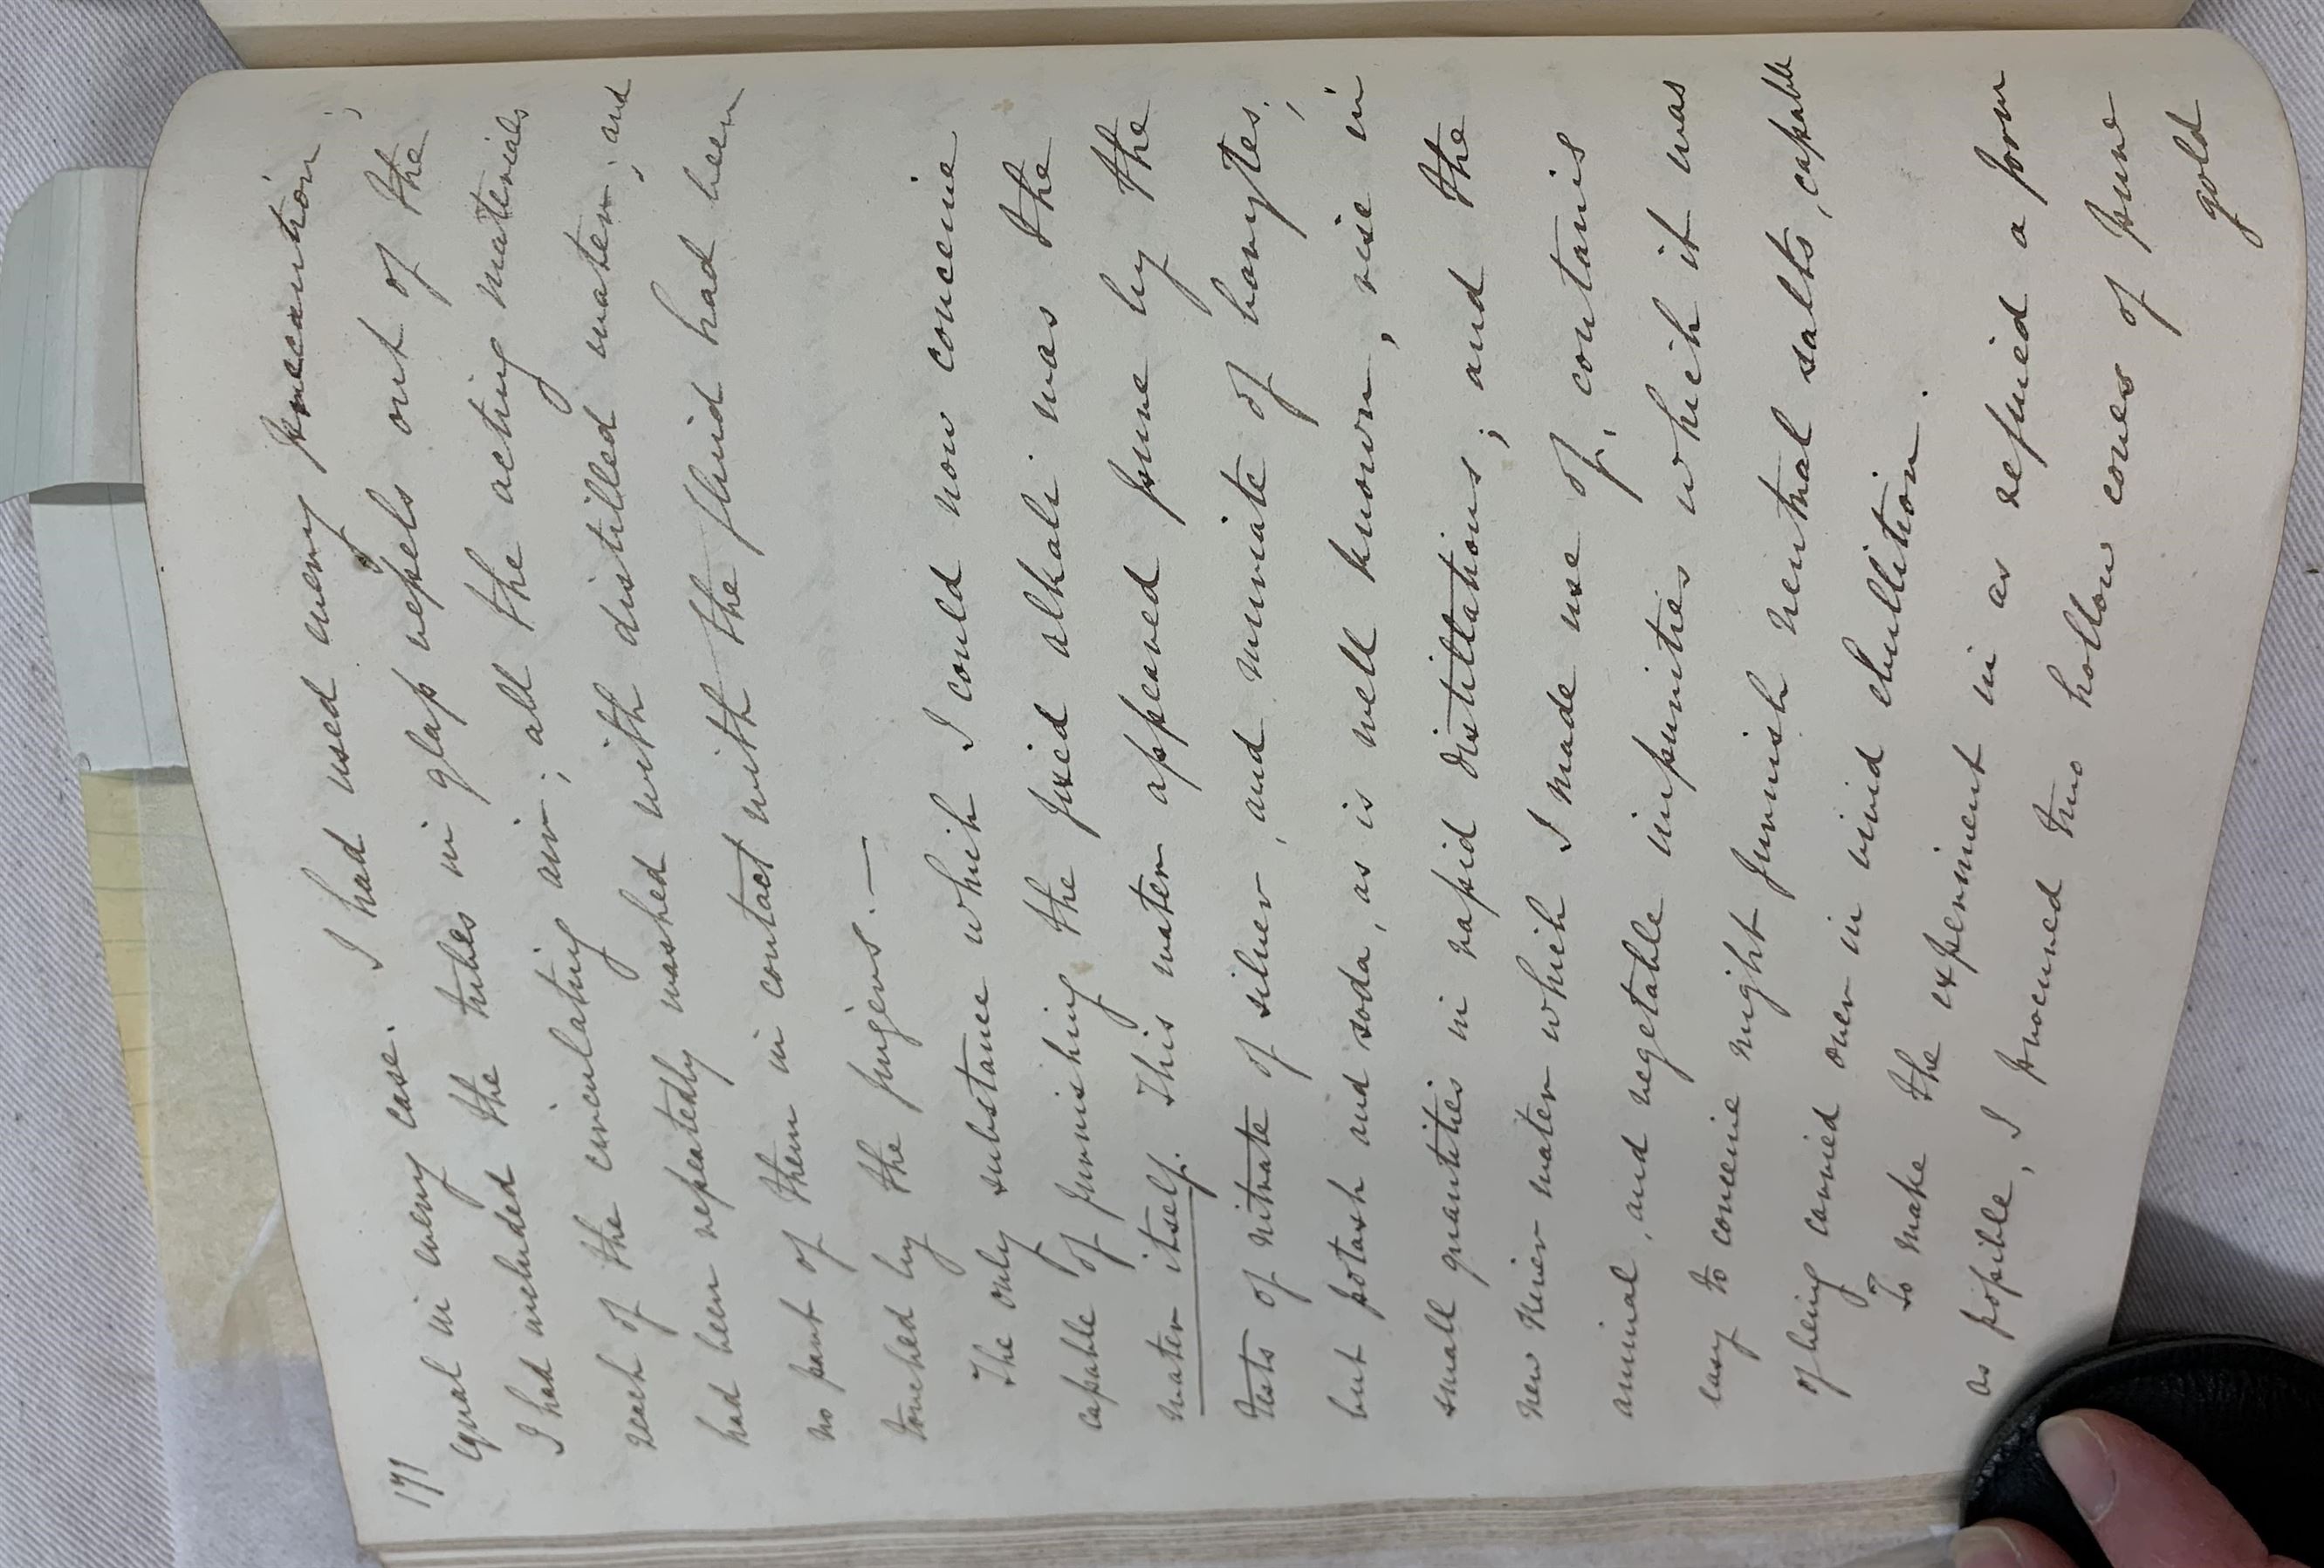 171
equal in every case. I had used every precaution;
I had included the tubes in glass vessels out of the
reach of the circulating air; all the acting materials
had been repeatedly washed with distilled water; and
no part of them in contact with the fluid had been
touched by the fingers.—
The only substance which I could now conceive
capable of furnishing the fixed alkali was the
water itself. This water appeared pure by the
tests of nitrate of silver, and muriate of barytes;
but potash and soda, as is well known, rise in
small quantities in rapid distillations; and the
New River water which I made use of, contains
animal, and vegetable impurities which it was
easy to conceive might furnish neutral salts, capable
of being carried over in vivid ebullition.
To make the experiment in as refined a form
as possible, I procured two hollow cones of pure
gold